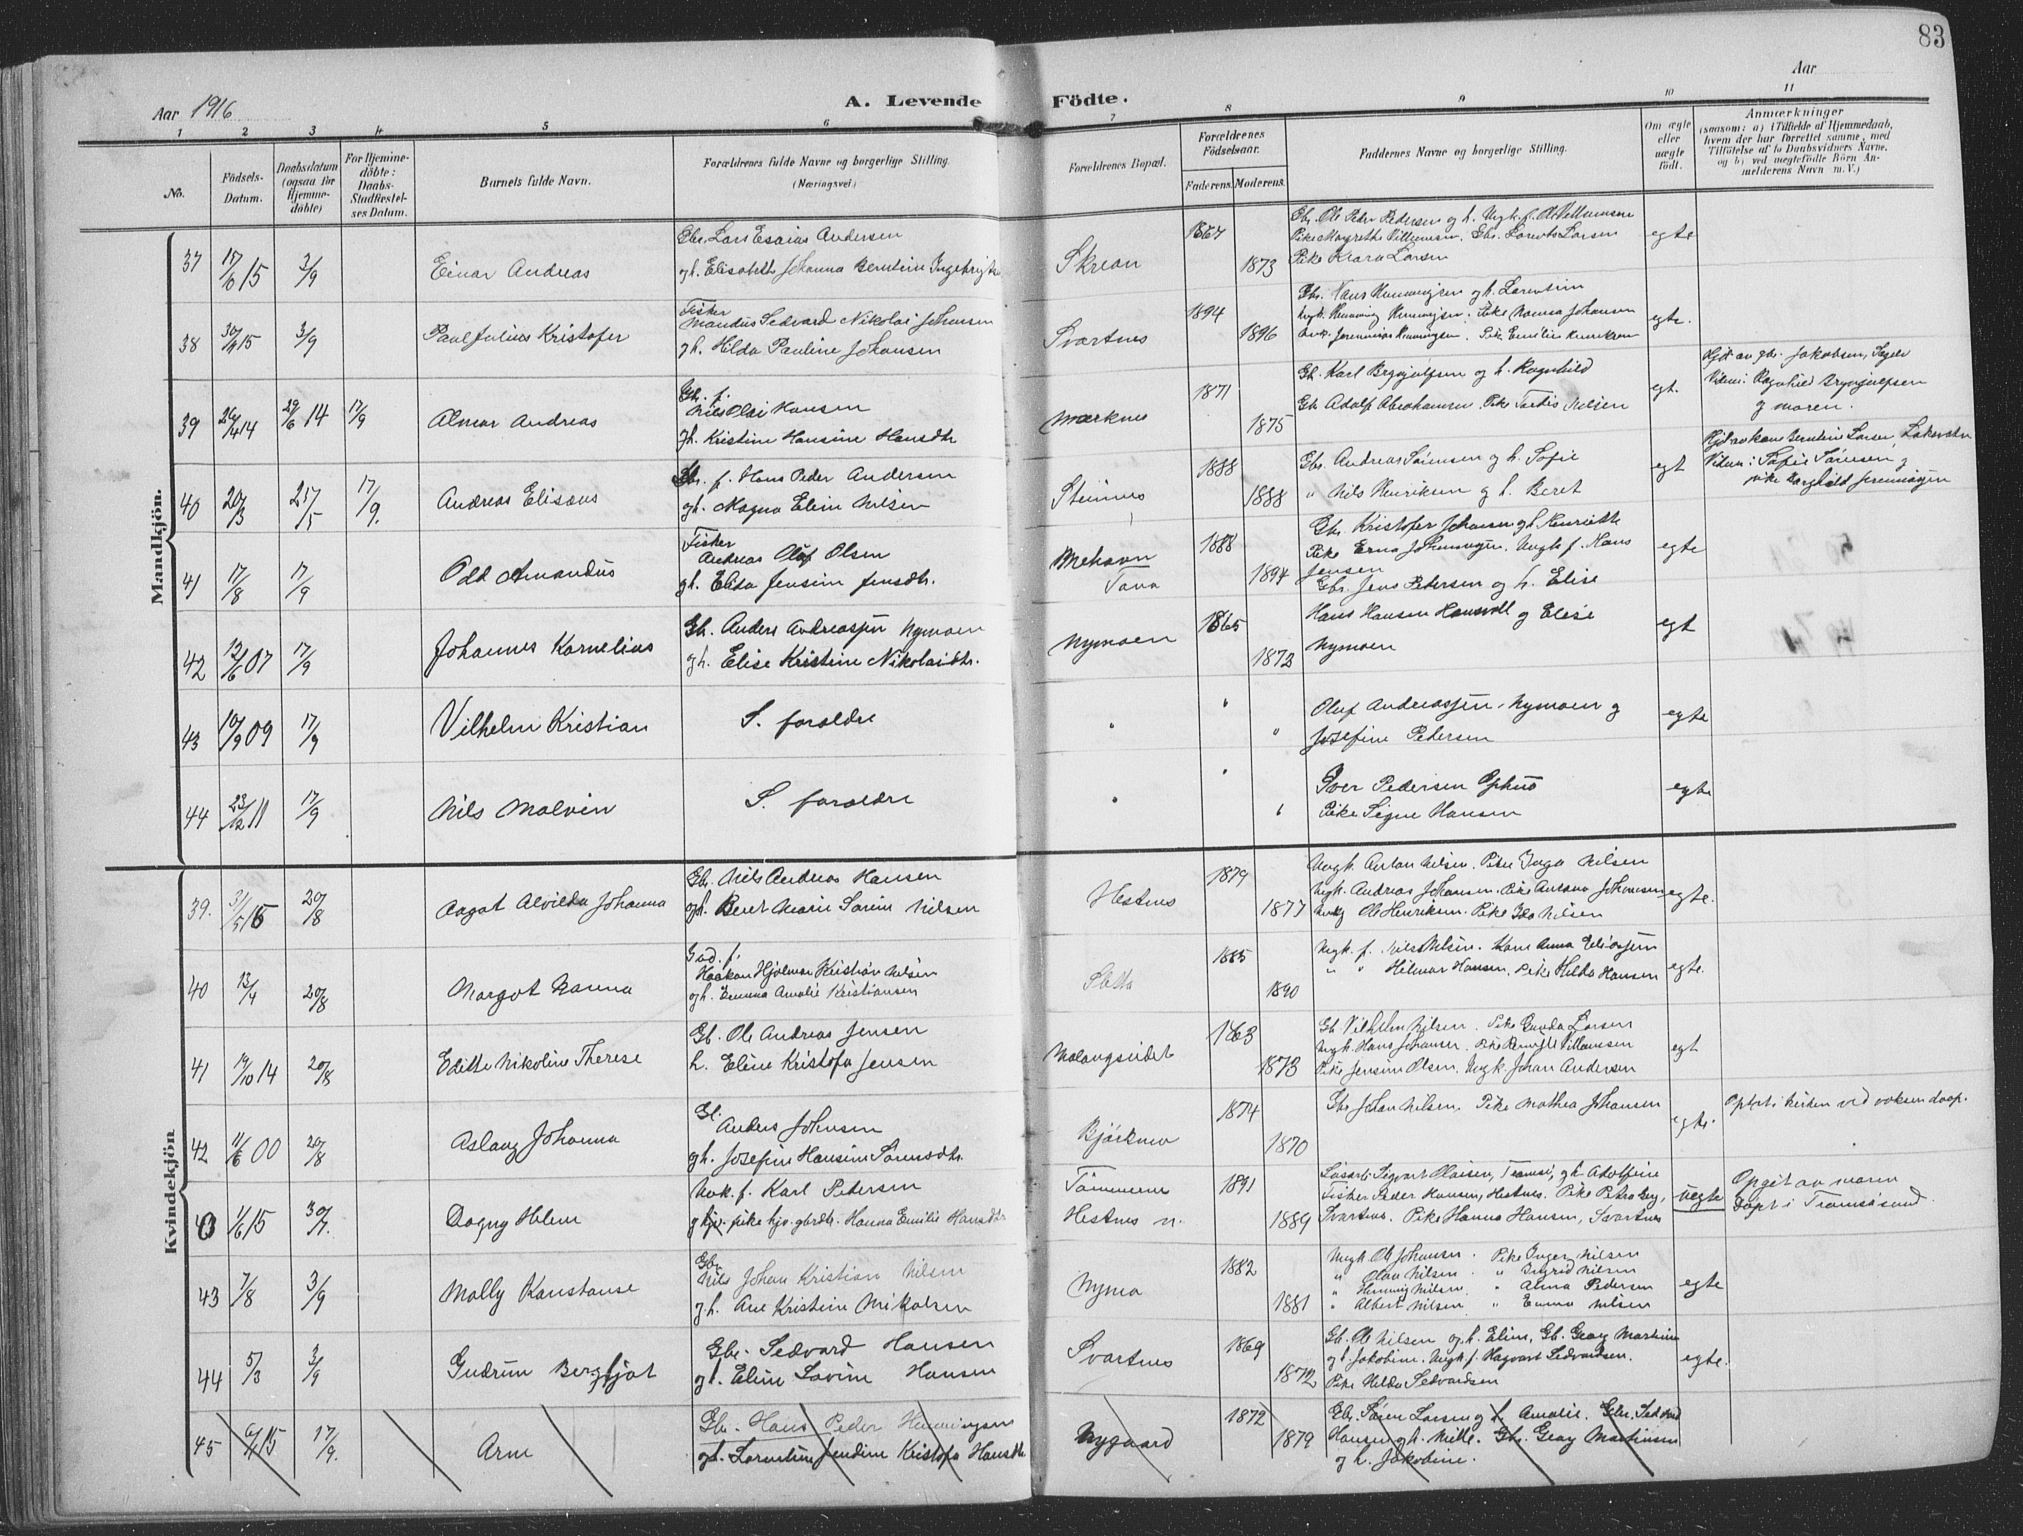 83
Aar 1916
A. Levende
Födte.
Aar
1 2 3 4 5 6 7 8 9 10 11
No.
Födsels-Datum.
Daabsdatum (ogsaa for Hjemmedöbte)
For Hjemmedöbte: Daabs-Stadfæstelses Datum.
Barnets fulde Navn.
Forældrenes fulde Navne og borgerlige Stilling.
(Næringsvei)
Forældrenes Bopæl.
Forældrenes Födselsaar.
Faderens. Moderens.
Faddernes Navne og borgerlige Stilling.
Om ægte eller uægte födt.
Anmærkninger
(saasom: a) i Tilfælde af Hjemmedaab, hvem der har forrettet samme, med Tilföielse af to Daabsvidners Navne, og b) ved uægtefödte Börn Anmelderens Navn m. V.)
Mandkjön.
37 3/9 Einar Andreas
Gbr. Lars Esaias Andersen
gh. Elisabeth Johanna Berntine
Skrean 1867 1873
Gbr. Ole Peder Pedersen og h. Ungk. f. Ole Villumsen
Pike Margrethe Villumsen. Gbr. Lorents Larsen
Pike Klara Larsen
egte
38 3/9 Paul Julius Kristofer
Fisker
Mandus Sedvard Nikolai Johansen
gh. Hilda Pauline Johansen
Svartnes 1894 1896
Gbr. Hans Henningsen og h. Lorentine
Ungk. Henning Henningsen. Pike Hanna Johansen
Ungk. Jeremias Henningsen. Pike Emilie Henriksen
egte.
39 26/4 14 29/6 14 17/9 Almar Andreas
Gbr. f.
Nils Olai Hansen
gh. Kristine Hansine Hansdtr
Mærknes 1871 1875
Gb. Karl Brynjulfsen og h. Ragnhild
Gb. Adolf Abrahamsen. Pike Tordis Nilsen
egt.
Hjd. av gbr. Jakobsen,
Vidner: Ragnhild Brynjulfsen
og moren.
40 20/3 25/5 17/9. Andreas Eliseus
Gbr. f. Hans Peder Andersen
gh. Magna Eline Nilsen
Steinnes 1888 1888
Gbr. Andreas Sörensen og h. Sofie
" Nils Henriksen og h. Beret
egt
Hjd av kone Berntine Larsen,
Vidner: Sofie Sörensen og
pike Borghild Jeremiasen
41 17/8 17/9 Odd Amandus
Fisker
Andreas Oluf Olsen
gh. Elida Jensine Jensdtr.
Mehavn
Tana 1888 1894
Gbr. Kristofer Johansen og h. Henriette
Pike Erna Johannesen. Ungk. f. Hans
Jensen
Gbr. Jens Pedersen og h. Elise
egte
42 07 17/9 Johannes Kornelius
Gb. Anders Andreassen Nymoen
gh. Elise Kristine Nikolaidtr.
Nymoen 1865 1872
Hans Hansen Hansvoll og Elise
Nymoen
egt
43 10/9 09 17/9 Vilhelm Kristian
S. foraldre
" " "
Oluf Andreassen Nymoen og
Josefine Pedersen
egte
44 23/12 11 17/9 Nils Malvin
S. foraldre
" " "
Iver Pedersen Ophus
Pike Signe Hansen
egte
Kvindekjön
39. 20/8 Aagot Alvilda Johanna
Gbr. Nils Andreas Hansen
gh. Beret Marie Sörine Nilsen
Hestnes 1879 1877
Ungk. Anton Nilsen. Pike Inga Nilsen
Ungk. Andreas Johansen. Pike Antona Johansen
Ungk Ole Henriksen. Pike Ida Nilsen
egte.
40 13/4 20/8 Margot Nanna
Gbd. f.
Haakon Hjalmar Kristian Nilsen
gh. Emma Amalie Kristiansen
Sletta 1885 1890
Ungk. f. Nils Nilsen. Kone Anna Eliassen
" " Hilmar Hansen. Pike Hilda Hansen
egte.
41 19/10 14 20/8 Edith Nikoline Therese
Gb. Ole Andreas Jensen
h. Eline Kristofa Jensen
Malangseidet 1863 1873
Gb. Vilhelm Nilsen. Pike Gunda Larsen
Ungk. Hans Johansen. Pike Villumsen
Pike Jensine Olsen. Ungk. Johan Andersen
egt
42 11/6 00 20/8 Aslaug Johanna
Gb.
Anders Johnsen
gh. Josefine Hansine Sörensdtr.
Björknes 1874 1870
Gbr Johan Nilsen. Pike Mathea Johansen
egte.
Optat i kirken ved voksen daap.
1/6 15 30/7. Dagny Helene
Uvk. f. Karl Petersen
pike hjv. gbrdtr. Hanna Emilie Hansdtr
Tömmernes
Hestnes n. 1891 1889
Sigvart Olaisen, Tromsö, gh Adolfine
Fisker Peder Hansen, Hestnes. Pike Petra Berg,
Svartnes. Pike Hanna Hansen, Svartnes
uegte
Opgit av moren
Döpt i Tromsösund
43 7/8 3/9 Molly Konstanse
Gbr
Nils Johan Kristian Nilsen
gh. Ane Kristine Mikalsen
Nymo 1882 1881
Ungk Ole Johansen. Pike Inger Nilsen
" Olav Nilsen " Ingrid Nilsen
" Henning Nilsen. " Alma Pedersen
" Albert Nilsen " Emma Nilsen
egte
44 5/3 3/9 Gudrun Bergljot
Gbr. Sedvard Hansen
gh. Eline Lovine Hansen
Svartnes 1869 1872
Gb. Ole Nilsen og h. Eline, Gb. Georg Martinsen
og h. Jakobine. Ungk. f. Hagvart Sedvardsen.
Pike Hilda Sedvardsen
egte.
45 15 17/9. Arne
Gbr. Hans Peder Henningsen
gh. Lorentine Jendine Kristofa Hansdtr
Nygaard 1872 1879
Gbr. Sören Larsen og h. Amalie. Gbr. Sedvard
Hansen og h. Mille. Gbr. Georg Martinsen
og h. Jakobine.